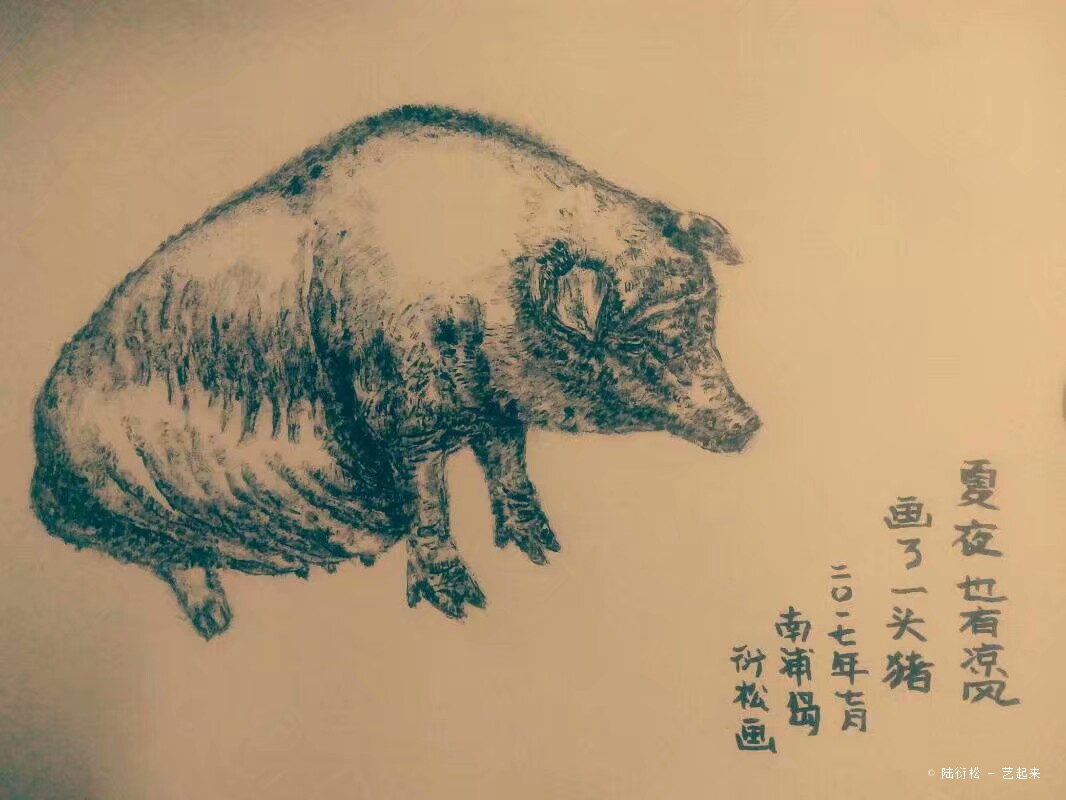 夏夜也有凉风
画了一头猪
二〇一七年七月
南浦岛
衍松画
© 陆衍松 - 艺起来